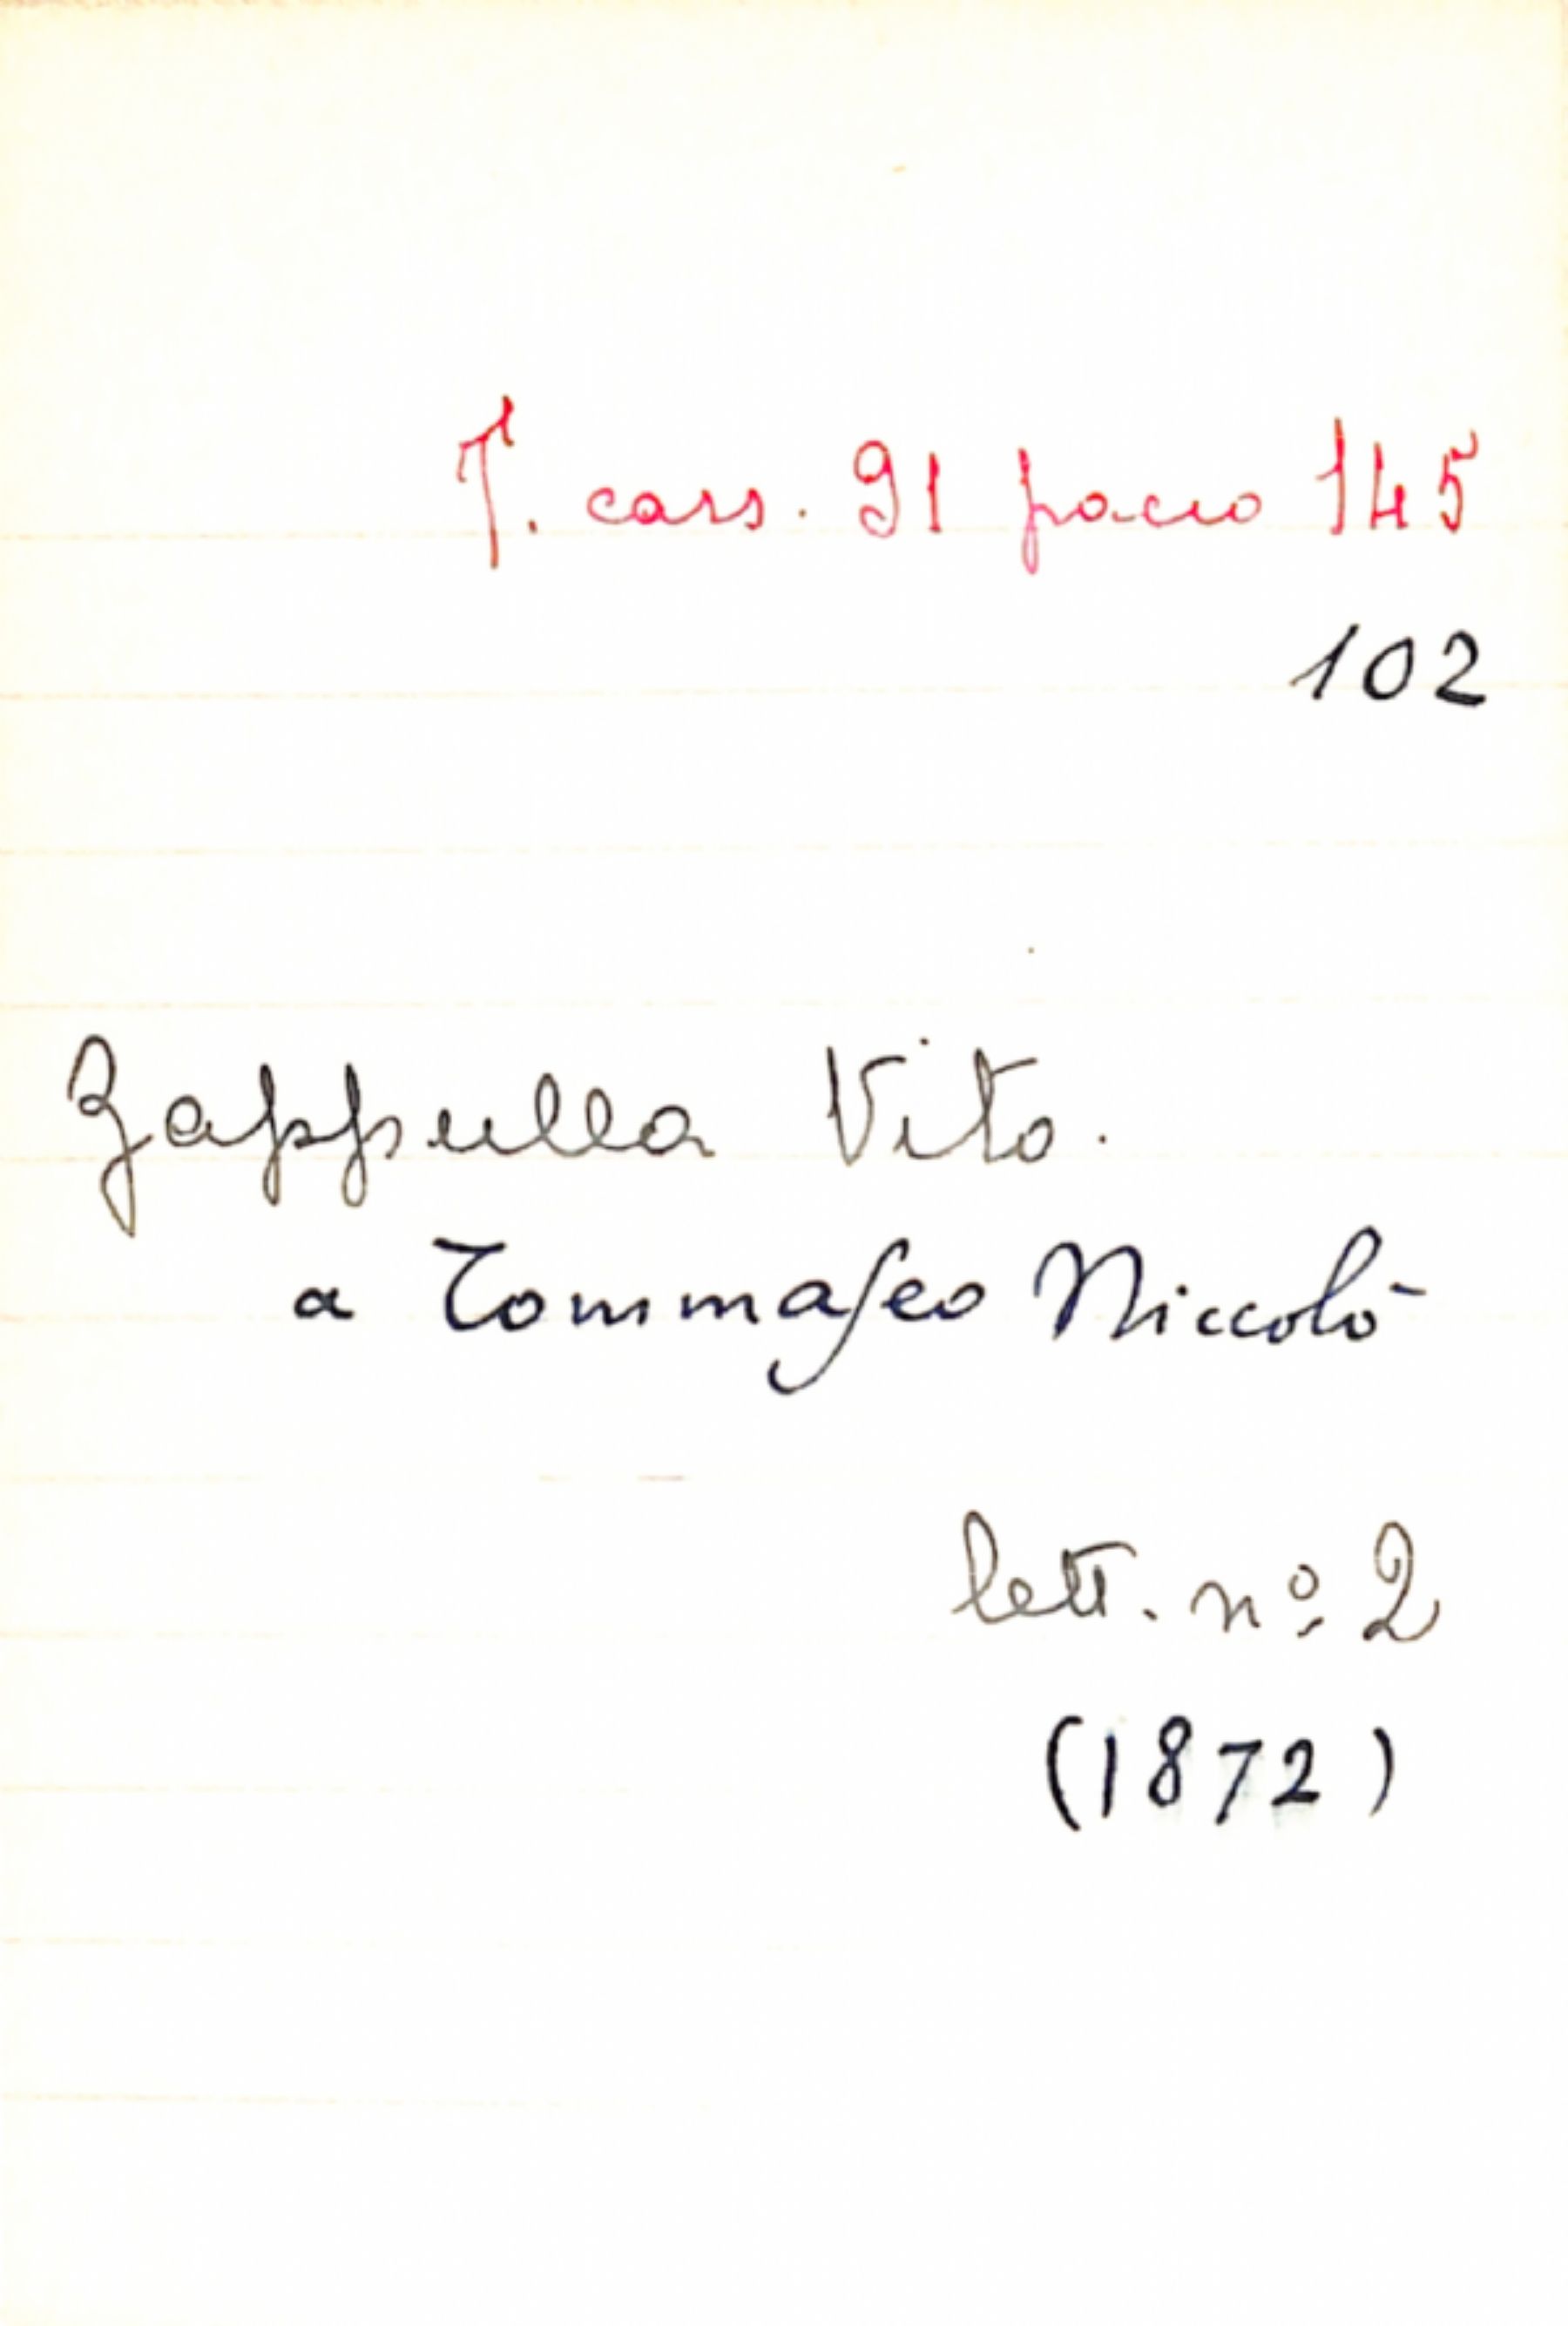 T. cass. 91 pacco 145
102
Zappulla Vito.
a Tommaseo Niccolò
lett. nº 2
(1872)